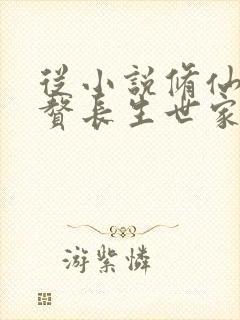 從小說脩仙
贅長生世家
游紫憐